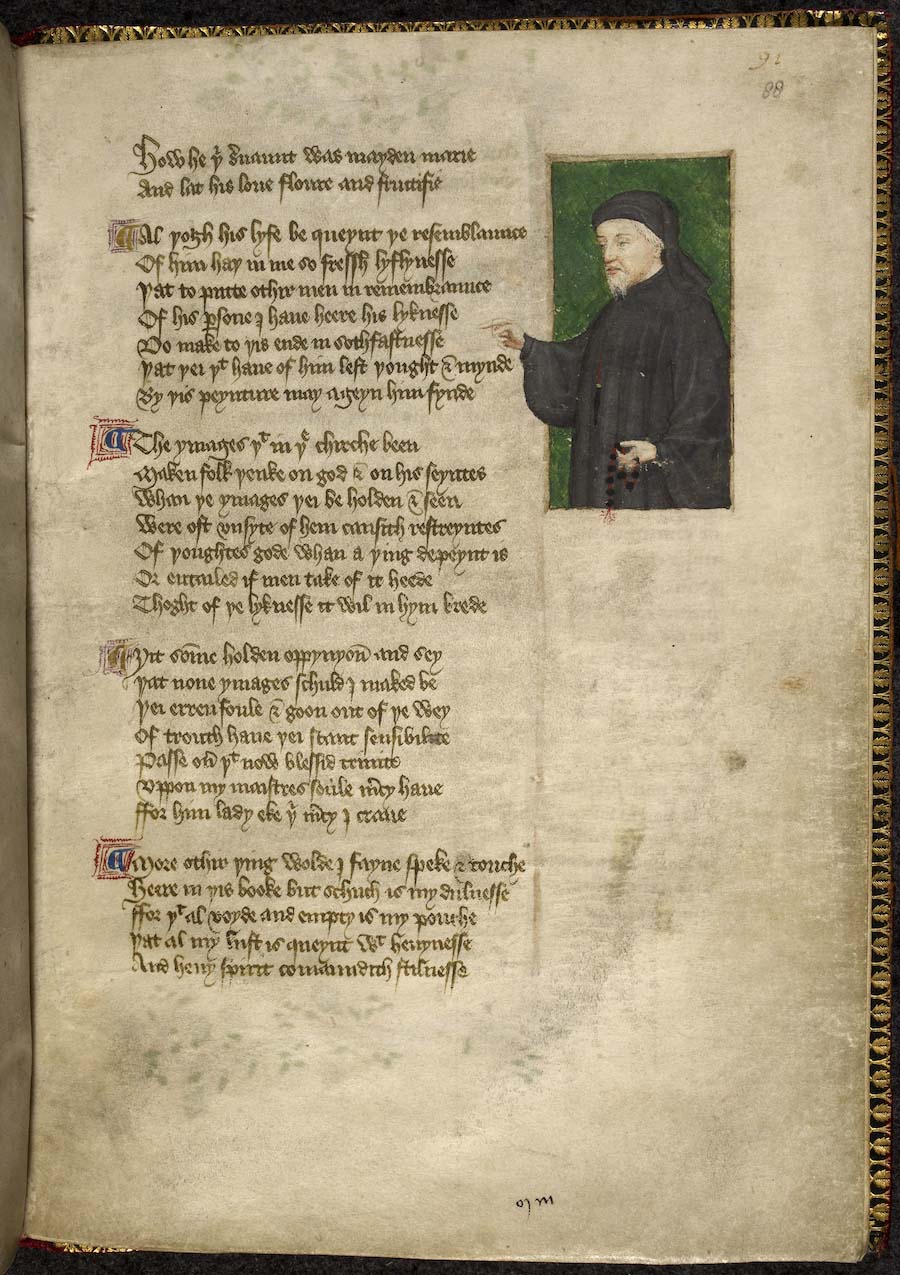 91
88
How he yͬ ẜuaunt was mayden marie
And lat his loue floure and fructifie
Al yogh his lyfe be queynt ye resemblaunce
Of him hay in me so fressh lyflynesse
Yat to putte othir men in remembraunce
Of his ꝑsone I haue heere his lyknesse
Do make to yis ende in sothfastnesse
Yat yei yͭ haue of him left yought & mynde
By yis peynture may ageyn him fynde
The ymages yͭ in yͤ chirche been
Maken folk yenke on god & on his seyntes
Whan ye ymages yei be holden & seen
Were oft vnsyte of hem causith restreyntes
Of youghtes gode whan a ying depeynt is
Or entailed if men take of it heede
Thoght of ye lyknesse it wil in hym brede
Yit som̄e holden oppynyon̄ and sey
Yat none ymages schuld I maked be
Yei erren foule & goon out of ye wey
Of trouth haue yei scant sensibilite
Passe ou̾ yͭ now blessid trinite
Vppon my maistres soule m̾cy haue
ffor him lady eke yͬ m̾cy I craue
More othir ying wolde I fayne speke & touche
Heere in yis booke but schuch is my dulnesse
ffor yͭ al voyde and empty is my pouche
Yat al my lust is queynt wͭ heuynesse
And heuy spirit comaundith stilnesse